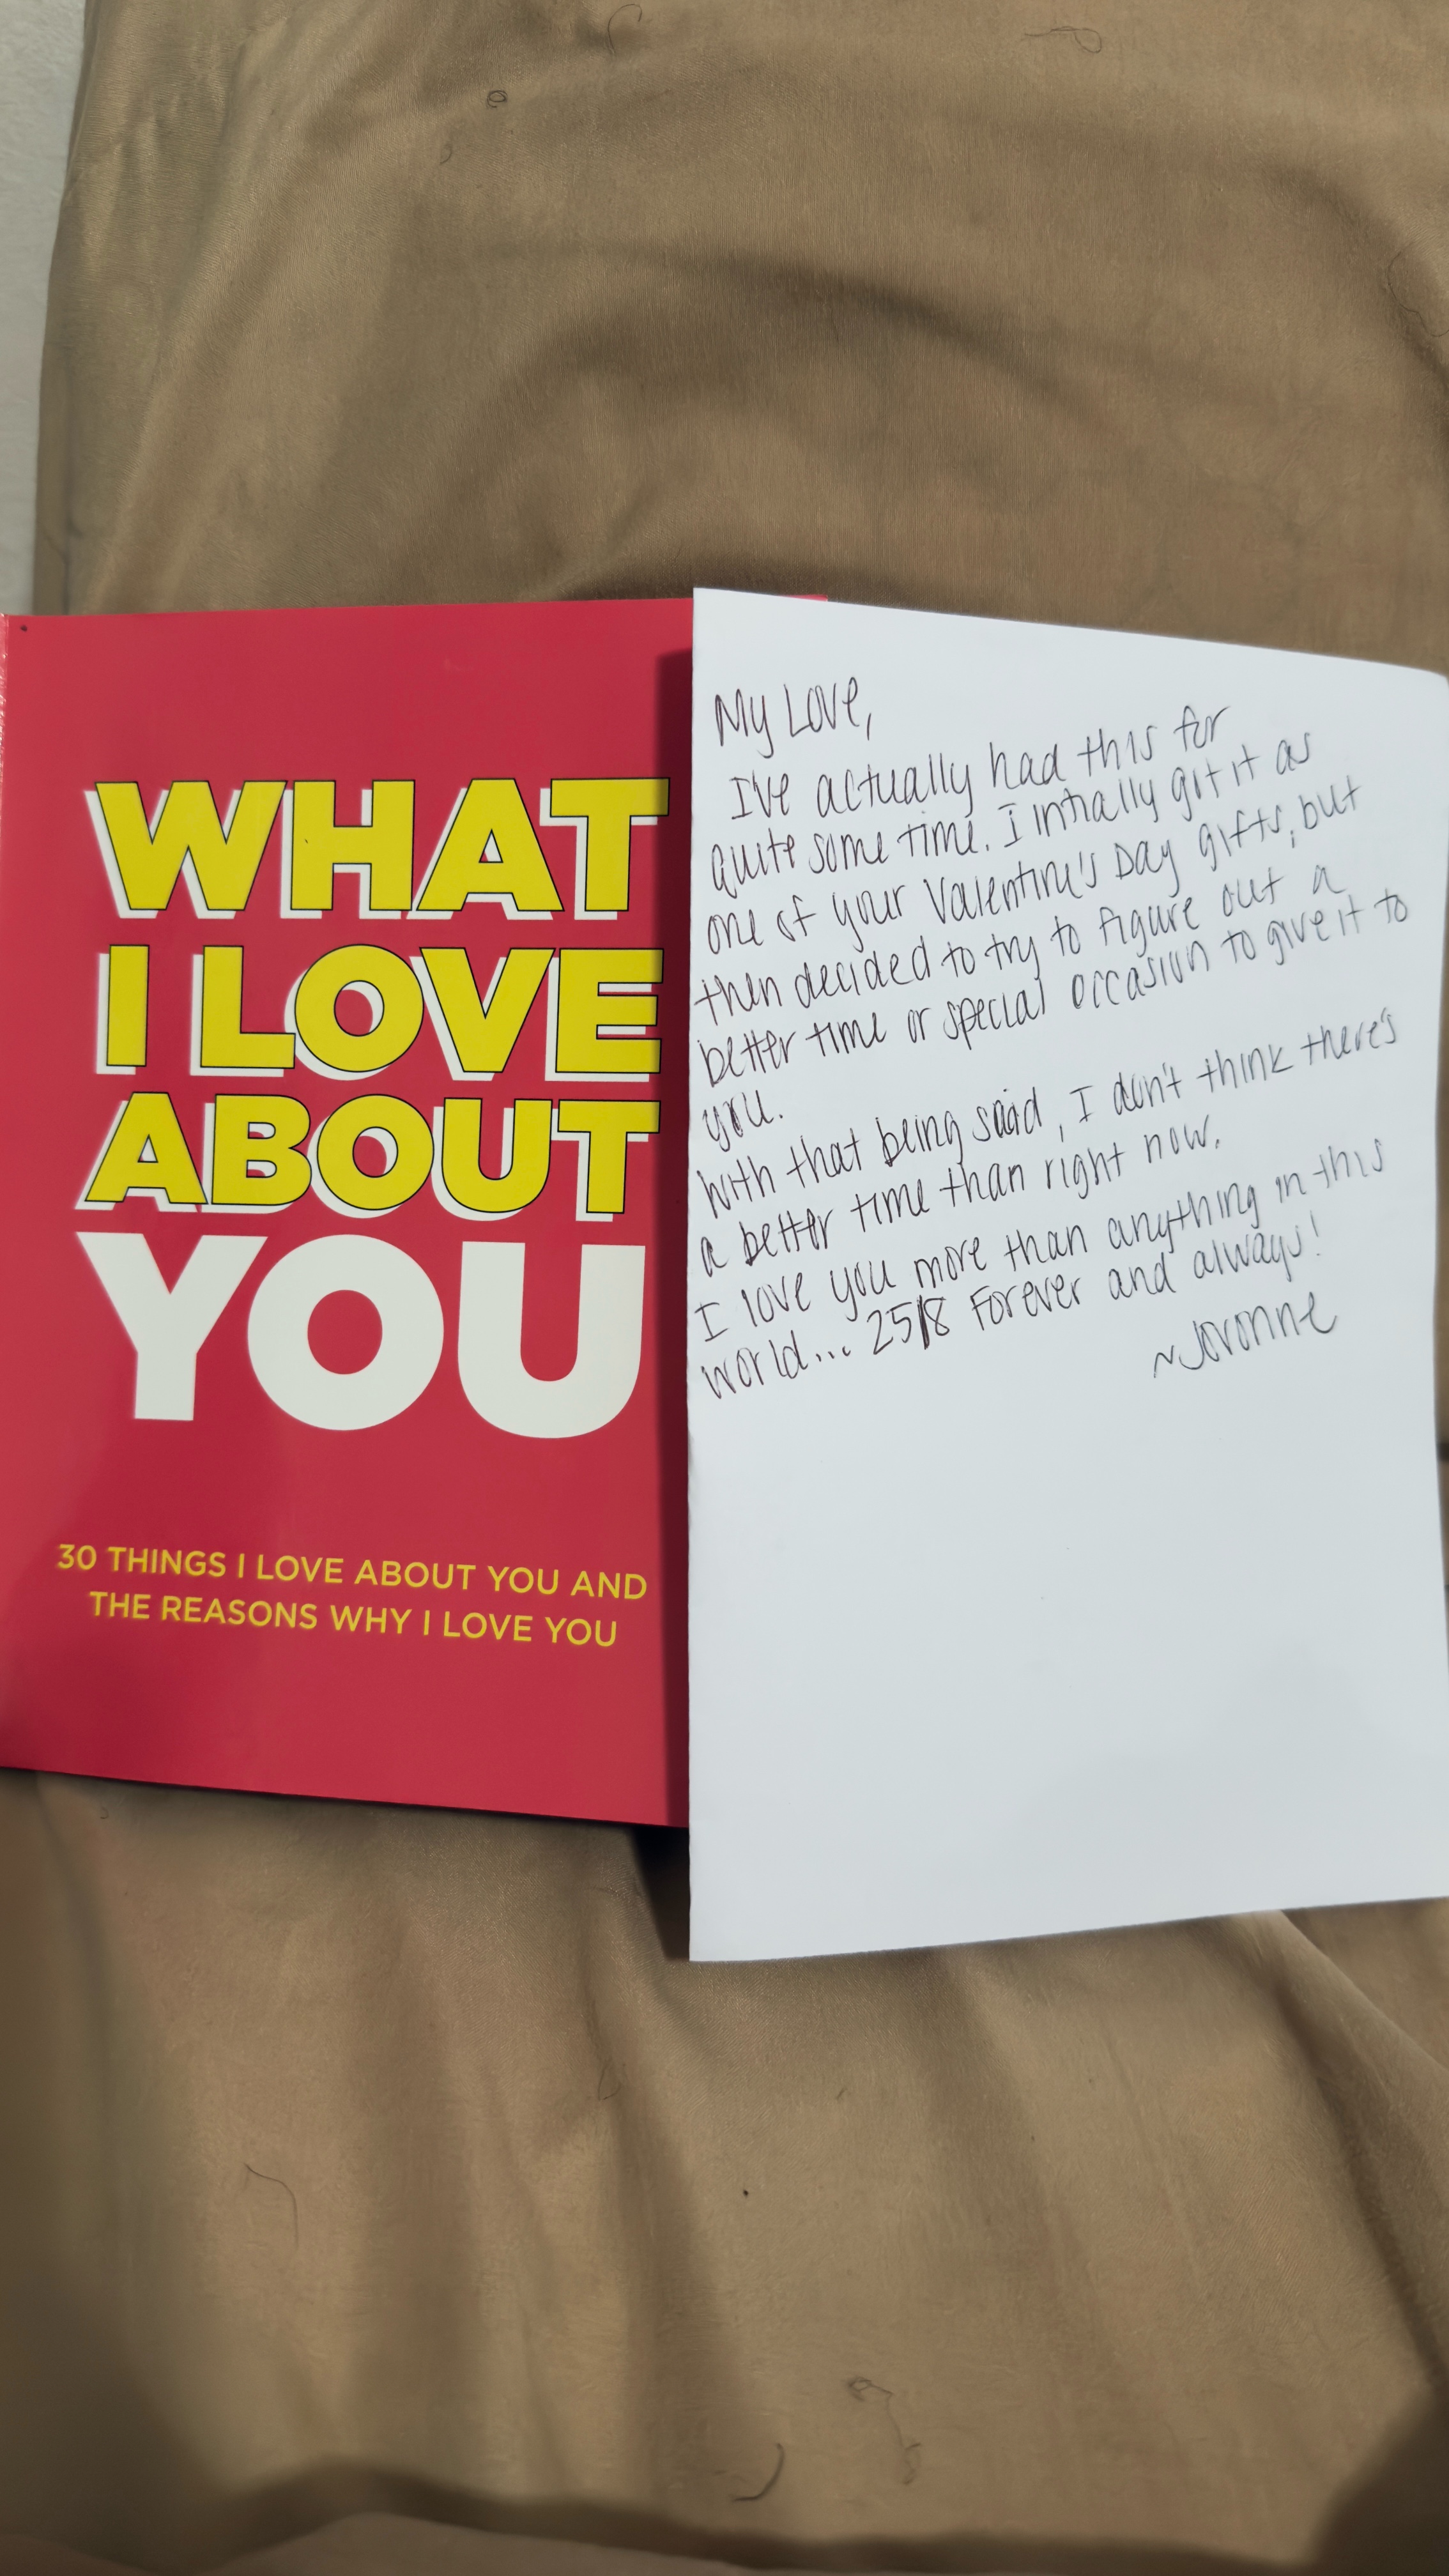 WHAT
I LOVE
ABOUT
YOU
30 THINGS I LOVE ABOUT YOU AND
THE REASONS WHY I LOVE YOU
My Love,
I've actually had this for
quite some time. I intially got it as
one of your Valentine's Day gifts, but
then decided to try to figure out a
better time or special occasion to give it to
you.
With that being said, I don't think there's
a better time than right now.
I love you more than anything in this
world... 25/8 Forever and always!
~Jovonne